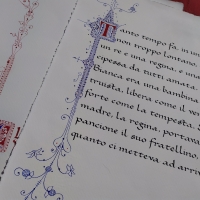 Tanto tempo fa, in un
non troppo lontano
un re e una regina, e una
cipessa da tutti amata.
Bianca era una bambina
truista, libera come il ve
forte come la tempesta. S
madre, la regina, portava
pancione il suo fratellino.
quanto ci metteva ad arri